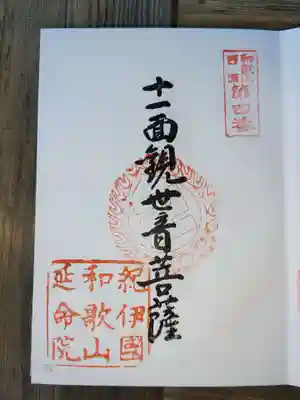 和歌山
西国
第四番
十一面観世音菩薩
紀伊國
和歌山
延命院